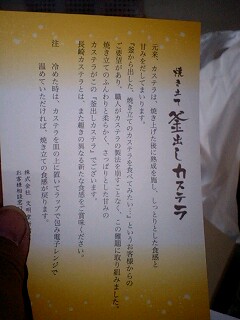 焼き立て 釜出しカステラ
元来、カステラは、焼き上げた後に熟成を施し、しっとりとした食感と
甘みをだしてまいります。
「釜から出した、焼き立てのカステラを食べてみたい。」というお客様からの
ご要望があり、職人がカステラの製法を崩すことなく、この種類に取り組みました。
焼き立てのふんわりと柔らかく、さっぱりとした甘みの
カステラがこの「釜出しカステラ」でございます。
長崎カステラとは、また趣きの異なる新たな食感をご賞味ください。
注 冷めた時は、カステラを皿の上に置いてラップで包み電子レンジで
温めていただければ、焼き立ての食感が戻ります。
株式会社 文明
お客様相談室